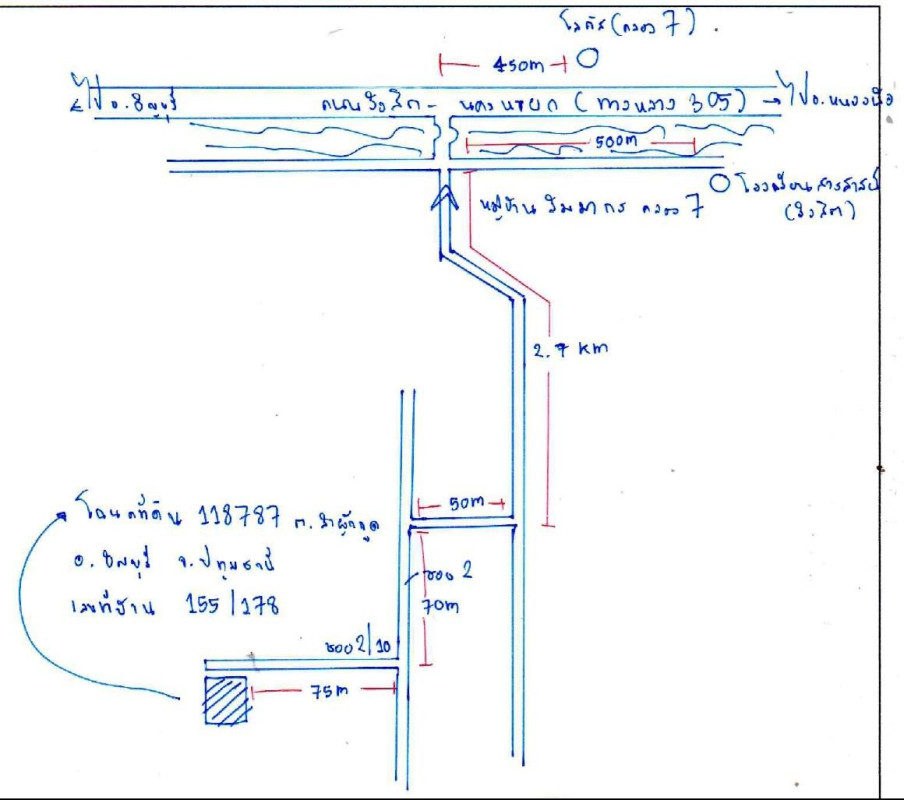 โลตัส (คลอง 7)
450m
ไป อ.ธัญบุรี
ถนนรังสิต - นครนายก (ทางหลวง 305)
ไป อ.หนองเสือ
500m
โรงเรียนสารสาสน์
(รังสิต)
หมู่บ้าน คลอง 7
2.7 km
50m
โฉนดที่ดิน 118787 ต.ลำผักกูด
อ. ธัญบุรี จ.ปทุมธานี
เลขที่บ้าน 155/178
ซอย 2
70m
ซอย 2/10
75m